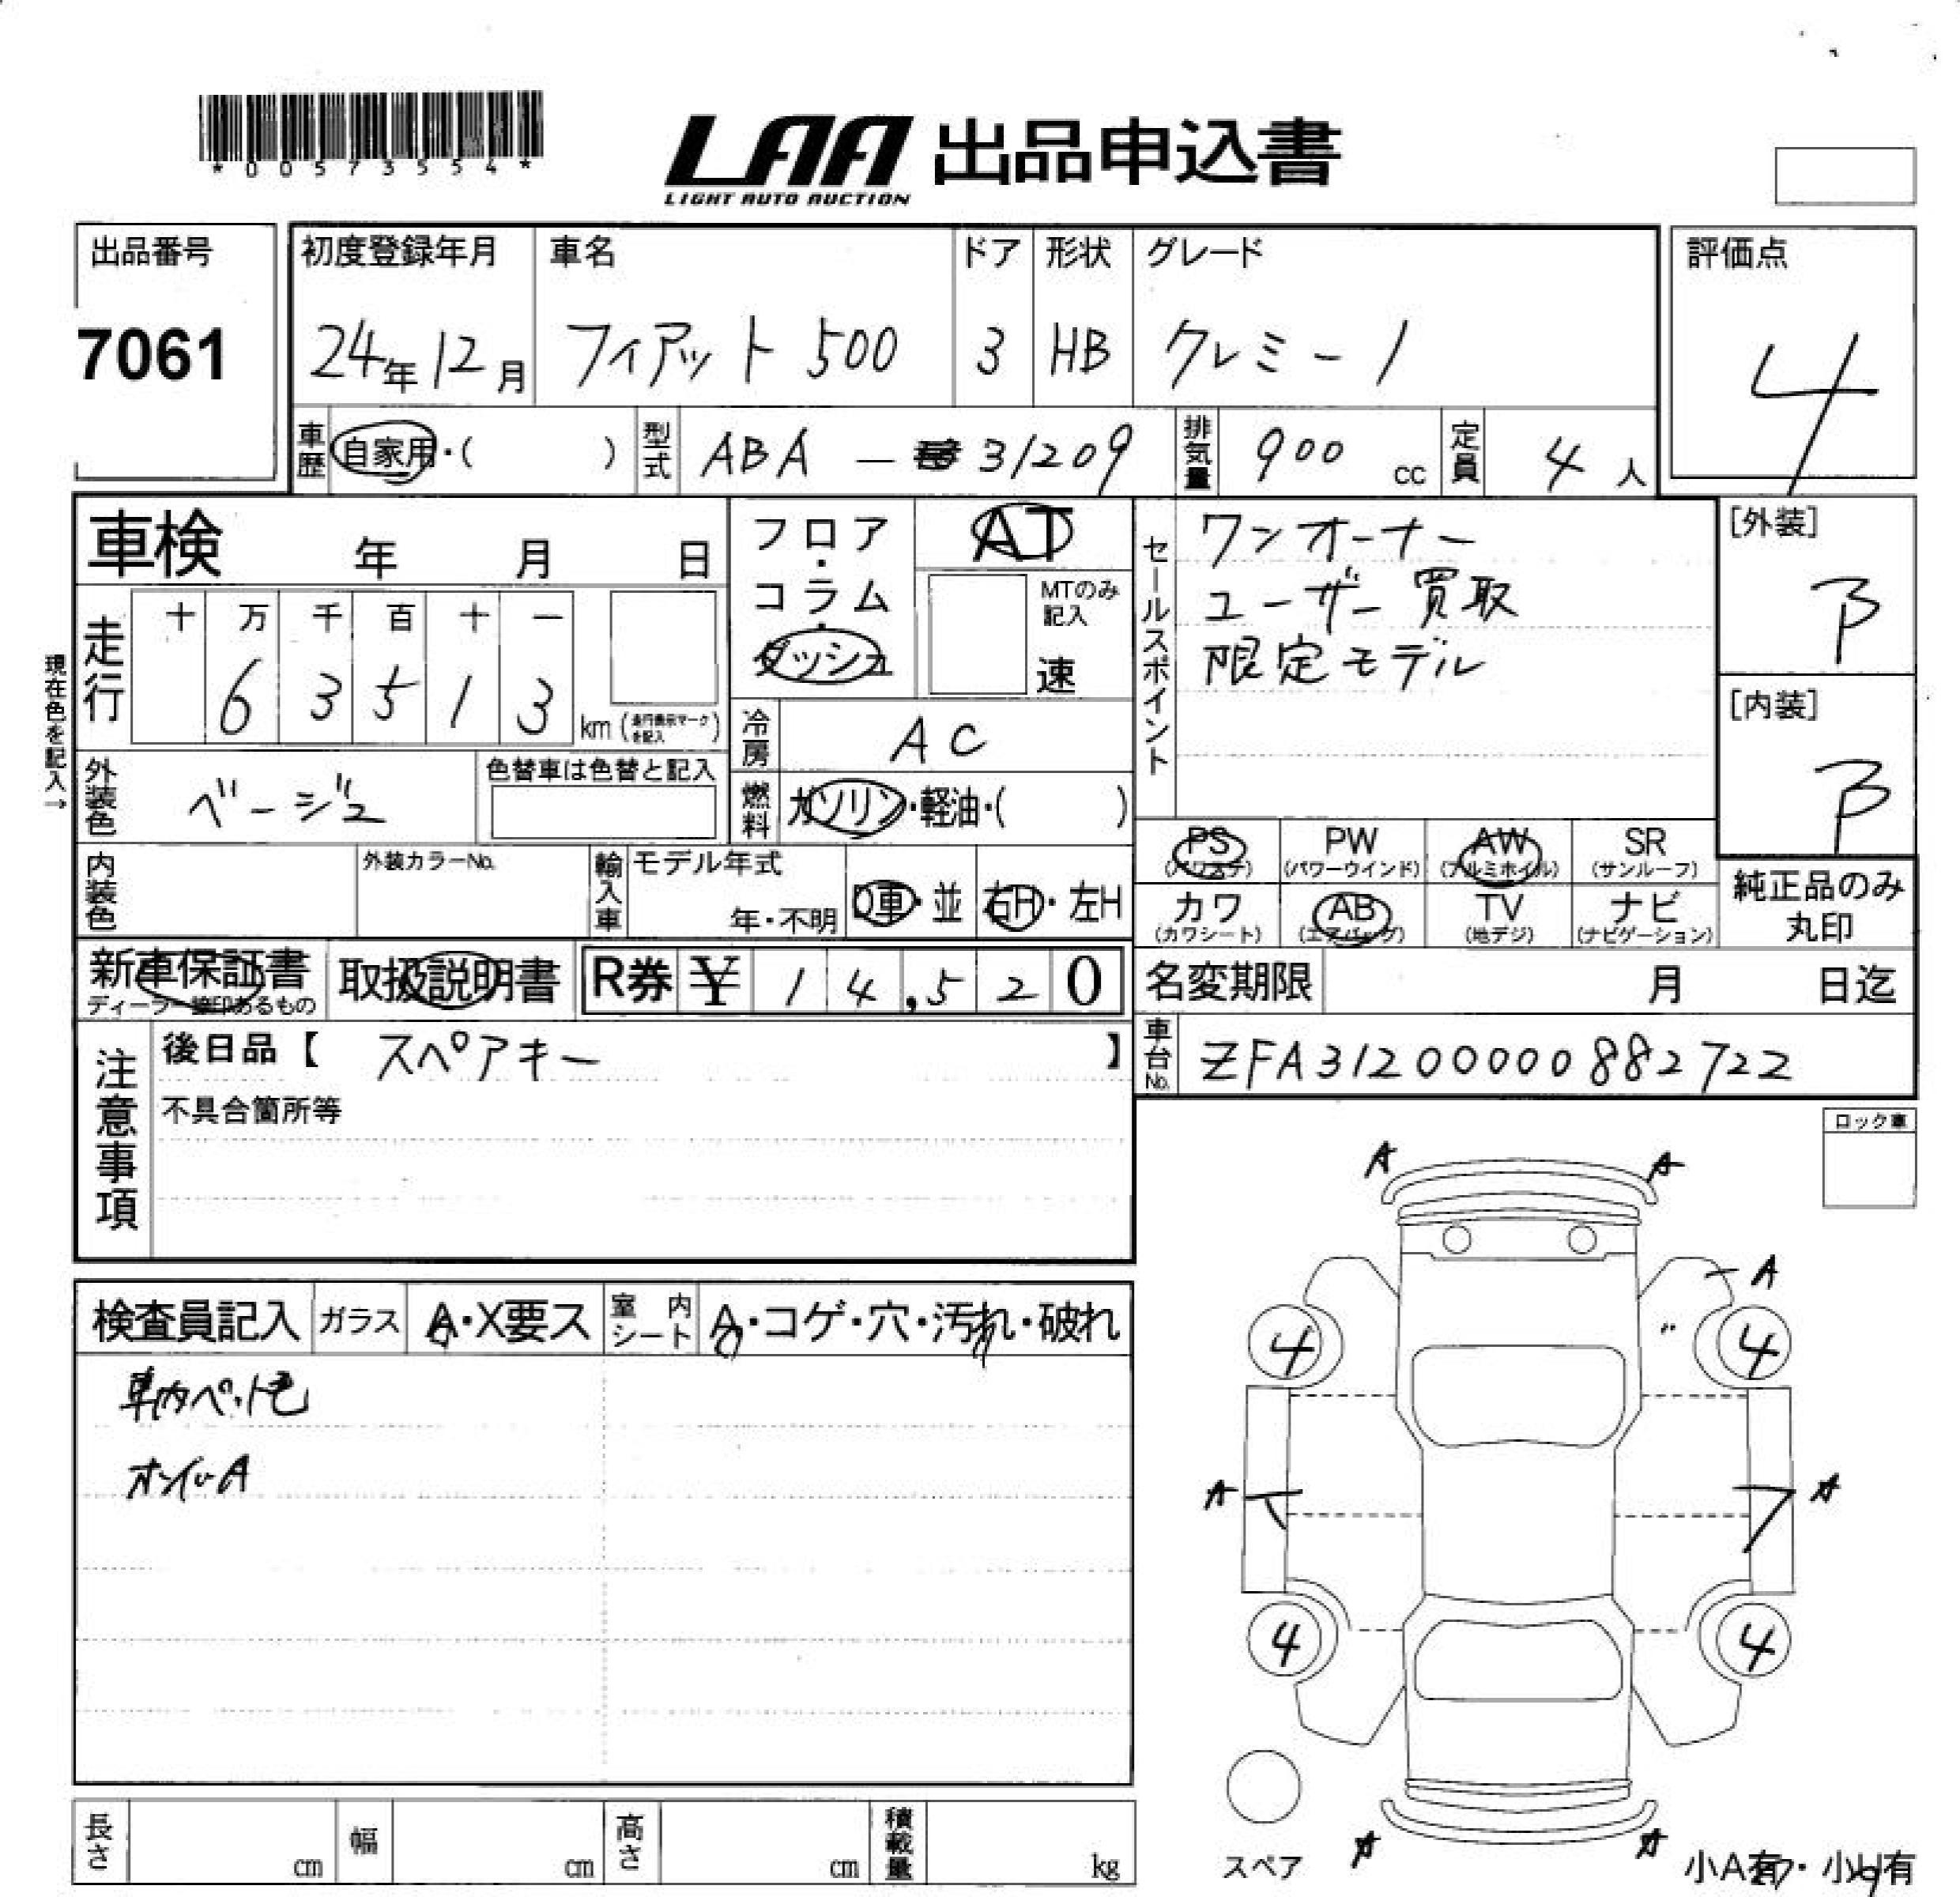 *00573554*
LAA 出品申込書
LIGHT AUTO AUCTION
出品番号
7061
初度登録年月
24年12月
車名
フィアット 500
ドア
3
形状
HB
グレード
クレミーノ
評価点
4
車歴 自家用・( )
型式 ABA - 31209
排気量 900 cc
定員 4人
車検 年 月 日
フロア・コラム・ダッシュ
AT
MTのみ記入
速
セールスポイント
ワンオーナー
ユーザー買取
限定モデル
[外装]
B
[内装]
B
現在色を記入→
走行
十 万 千 百 十 一
6 3 5 1 3
km(走行表示マークを記入)
冷房 AC
外装色 ベージュ
色替車は色替と記入
燃料 ガソリン・軽油・( )
PS (パワステ)
PW (パワーウインド)
AW (アルミホイル)
SR (サンルーフ)
カワ (カワシート)
AB (エアバッグ)
TV (地デジ)
ナビ (ナビゲーション)
純正品のみ丸印
内装色
外装カラーNo.
輸入車
モデル年式
年・不明
D車・並
右H・左H
新車保証書
ディーラー捺印あるもの
取扱説明書
R券 ¥ 14,520
名変期限 月 日迄
注意事項
後日品【 スペアキー 】
不具合箇所等
車台No. ZFA31200000882722
ロック車
検査員記入
ガラス A・X要ス
室内シート A・コゲ・穴・汚れ・破れ
A A
A
4 4
A A
4 4
A A
スペア
小A有・小U有
長さ cm
幅 cm
高さ cm
積載量 kg